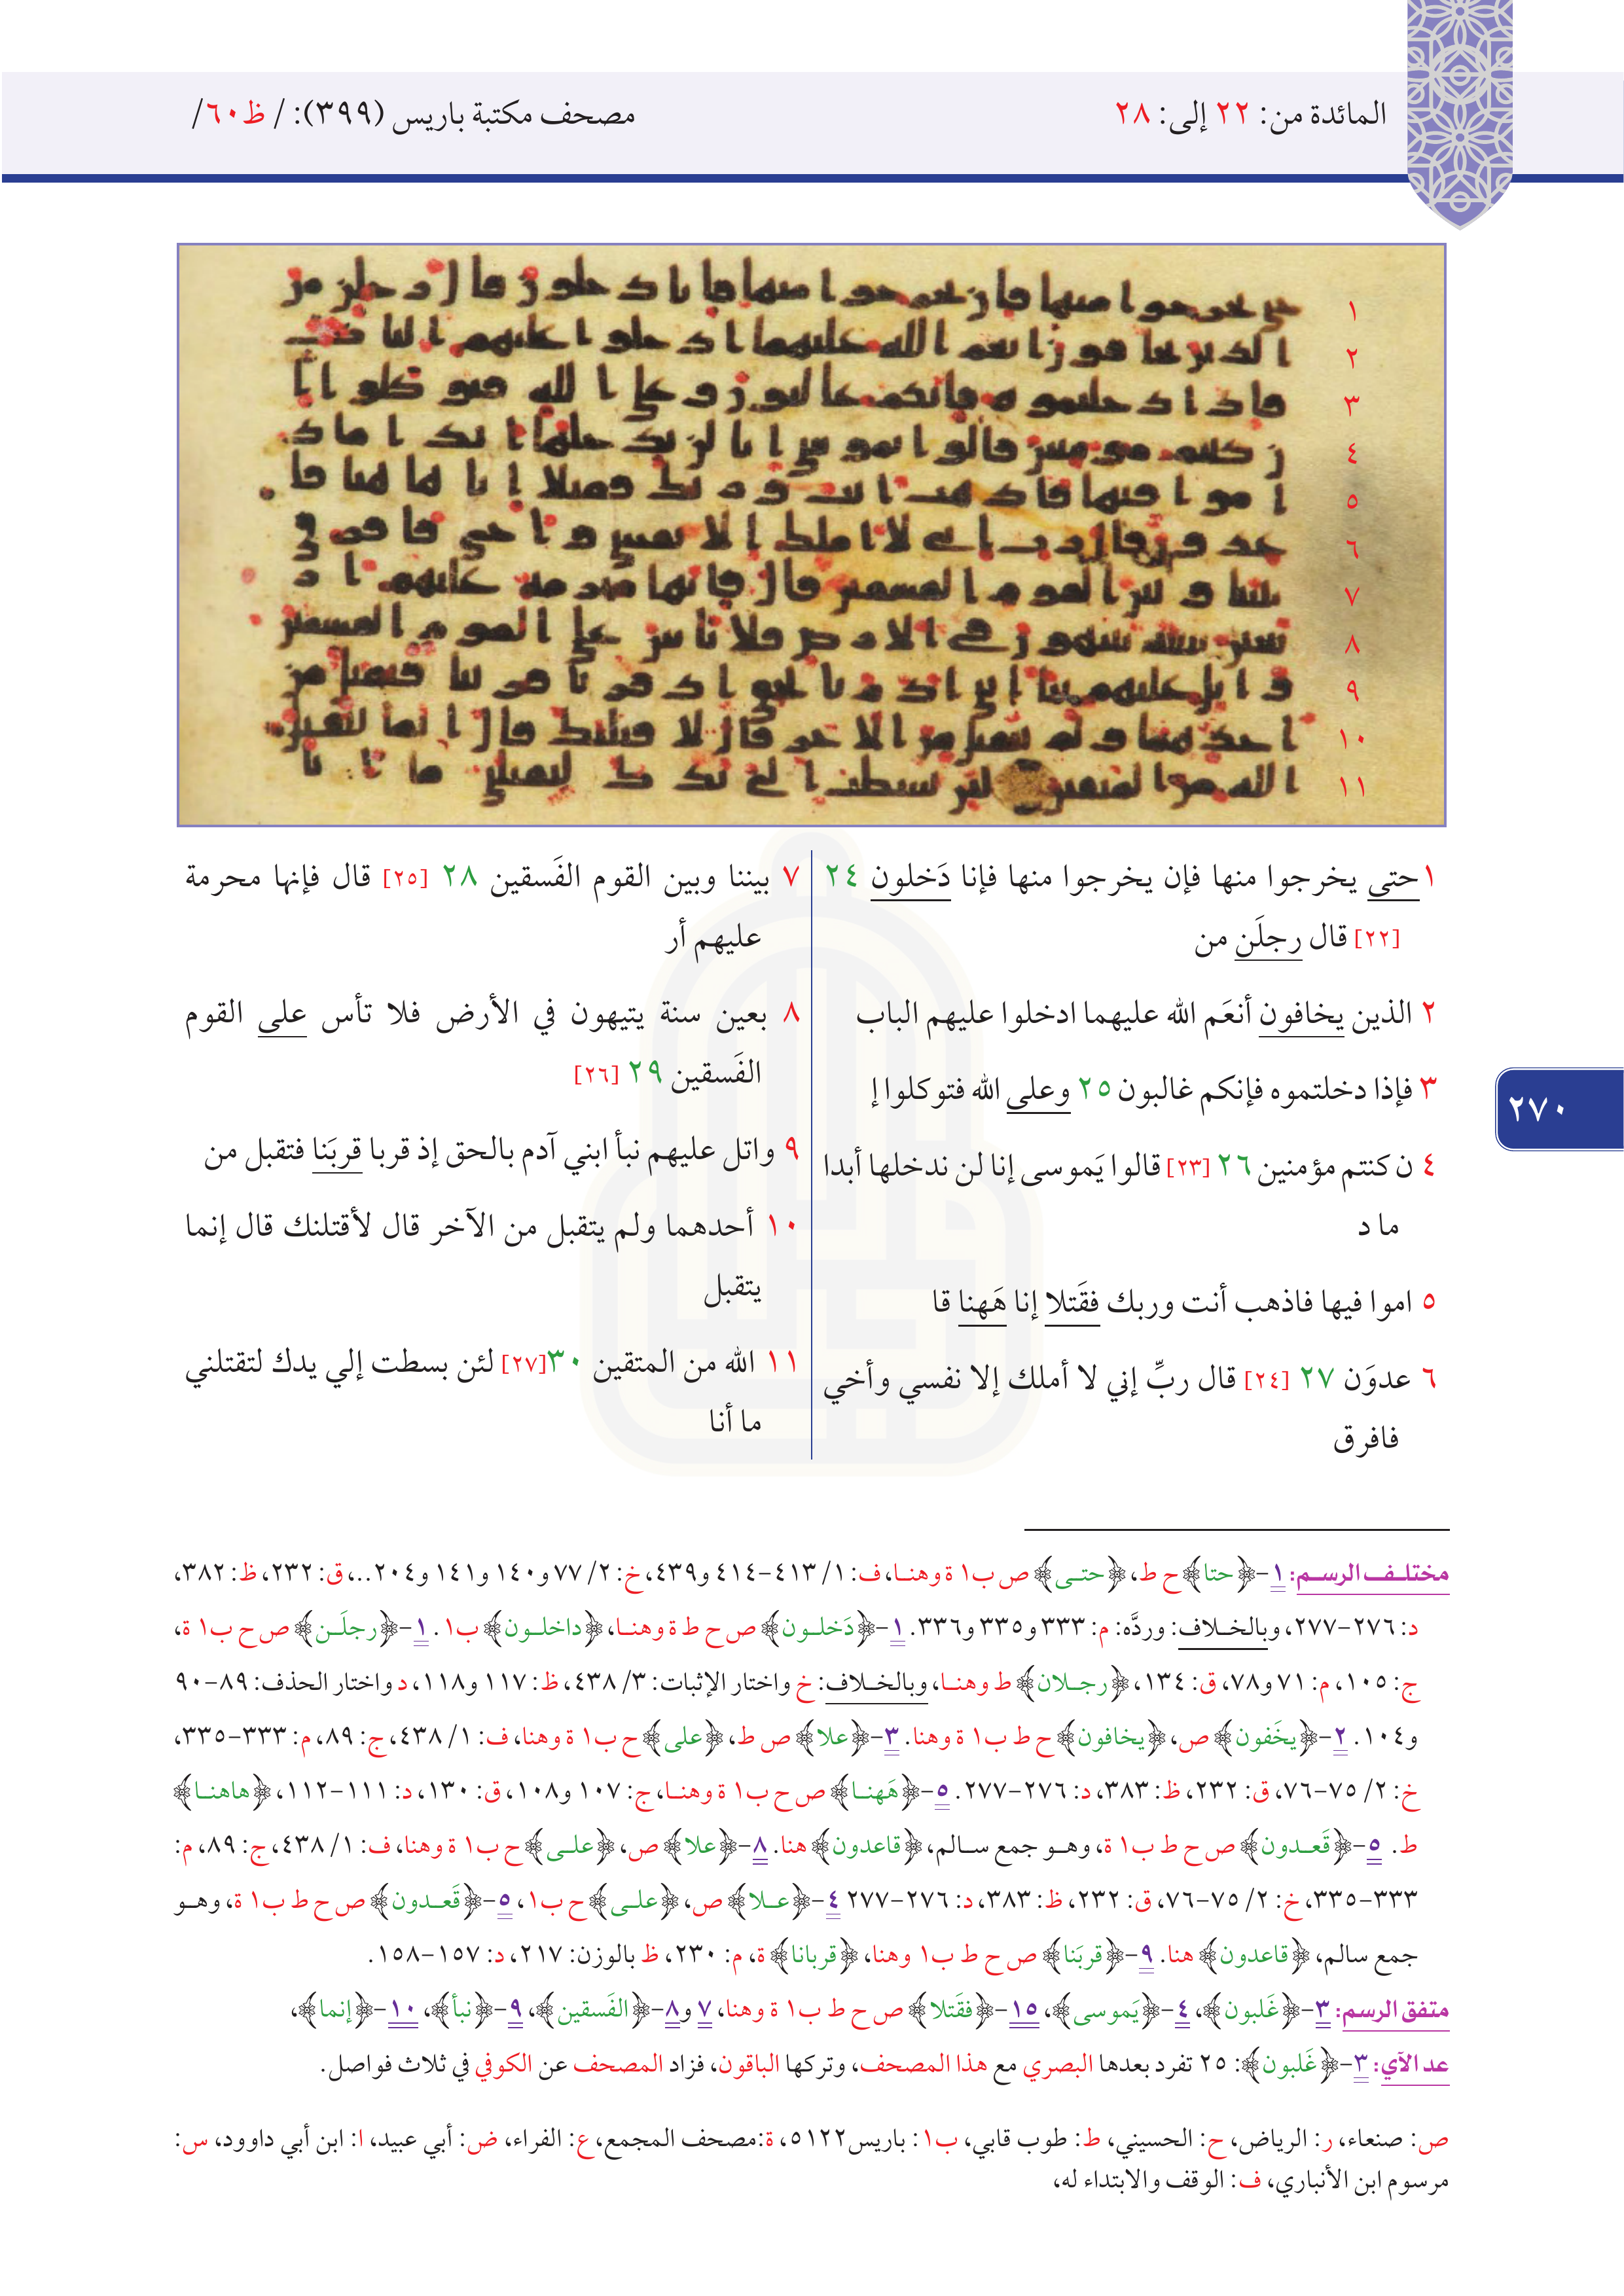 المائدة من: ٢٢ إلى: ٢٨
مصحف مكتبة باريس (٣٩٩): / ظ٦٠/
١
٢
٣
٤
٥
٦
٧
٨
٩
١٠
١١
١ حتى يخرجوا منها فإن يخرجوا منها فإنا دَخلون ٢٤
[٢٢] قال رجلَن من
٢ الذين يخافون أنعَم الله عليهما ادخلوا عليهم الباب
٣ فإذا دخلتموه فإنكم غالبون ٢٥ وعلى الله فتوكلوا إ
٤ ن كنتم مؤمنين ٢٦ [٢٣] قالوا يَموسى إنا لن ندخلها أبدا
ما د
٥ اموا فيها فاذهب أنت وربك فقَتلا إنا هَهنا قا
٦ عدوَن ٢٧ [٢٤] قال ربِّ إني لا أملك إلا نفسي وأخي
فافرق
٧ بيننا وبين القوم الفَسقين ٢٨ [٢٥] قال فإنها محرمة
عليهم أر
٨ بعين سنة يتيهون في الأرض فلا تأس على القوم
الفَسقين ٢٩ [٢٦]
٩ واتل عليهم نبأ ابني آدم بالحق إذ قربا قربَنا فتقبل من
١٠ أحدهما ولم يتقبل من الآخر قال لأقتلنك قال إنما
يتقبل
١١ الله من المتقين ٣٠[٢٧] لئن بسطت إلي يدك لتقتلني
ما أنا
٢٧٠
مختلف الرسم: ١-﴿حتا﴾ ح ط، ﴿حتى﴾ ص ب١ ة وهنا، ف: ١/ ٤١٣-٤١٤ و٤٣٩، خ: ٢/ ٧٧ و١٤٠ و١٤١ و٢٠٤..، ق: ٢٣٢، ظ: ٣٨٢،
د: ٢٧٦-٢٧٧، وبالخلاف: وردَّه: م: ٣٣٣ و٣٣٥ و٣٣٦. ١-﴿دَخلون﴾ ص ح ط ة وهنا، ﴿داخلون﴾ ب١. ١-﴿رجلَن﴾ ص ح ب١ ة،
ج: ١٠٥، م: ٧١ و٧٨، ق: ١٣٤، ﴿رجلان﴾ ط وهنا، وبالخلاف: خ واختار الإثبات: ٣/ ٤٣٨، ظ: ١١٧ و١١٨، د واختار الحذف: ٨٩-٩٠
و١٠٤. ٢-﴿يخَفون﴾ ص، ﴿يخافون﴾ ح ط ب١ ة وهنا. ٣-﴿علا﴾ ص ط، ﴿على﴾ ح ب١ ة وهنا، ف: ١/ ٤٣٨، ج: ٨٩، م: ٣٣٣-٣٣٥،
خ: ٢/ ٧٥-٧٦، ق: ٢٣٢، ظ: ٣٨٣، د: ٢٧٦-٢٧٧. ٥-﴿هَهنا﴾ ص ح ب١ ة وهنا، ج: ١٠٧ و١٠٨، ق: ١٣٠، د: ١١١-١١٢، ﴿هاهنا﴾
ط. ٥-﴿قَعدون﴾ ص ح ط ب١ ة، وهو جمع سالم، ﴿قاعدون﴾ هنا. ٨-﴿علا﴾ ص، ﴿على﴾ ح ب١ ة وهنا، ف: ١/ ٤٣٨، ج: ٨٩، م:
٣٣٣-٣٣٥، خ: ٢/ ٧٥-٧٦، ق: ٢٣٢، ظ: ٣٨٣، د: ٢٧٦-٢٧٧ ٤-﴿علا﴾ ص، ﴿على﴾ ح ب١، ٥-﴿قَعدون﴾ ص ح ط ب١ ة، وهو
جمع سالم، ﴿قاعدون﴾ هنا. ٩-﴿قربَنا﴾ ص ح ط ب١ وهنا، ﴿قربانا﴾ ة، م: ٢٣٠، ظ بالوزن: ٢١٧، د: ١٥٧-١٥٨.
متفق الرسم: ٣-﴿غَلبون﴾، ٤-﴿يَموسى﴾، ١٥-﴿فقَتلا﴾ ص ح ط ب١ ة وهنا، ٧ و٨-﴿الفَسقين﴾، ٩-﴿نبأ﴾، ١٠-﴿إنما﴾،
عد الآي: ٣-﴿غَلبون﴾: ٢٥ تفرد بعدها البصري مع هذا المصحف، وتركها الباقون، فزاد المصحف عن الكوفي في ثلاث فواصل.
ص: صنعاء، ر: الرياض، ح: الحسيني، ط: طوب قابي، ب١: باريس٥١٢٢، ة:مصحف المجمع، ع: الفراء، ض: أبي عبيد، ا: ابن أبي داوود، س:
مرسوم ابن الأنباري، ف: الوقف والابتداء له،